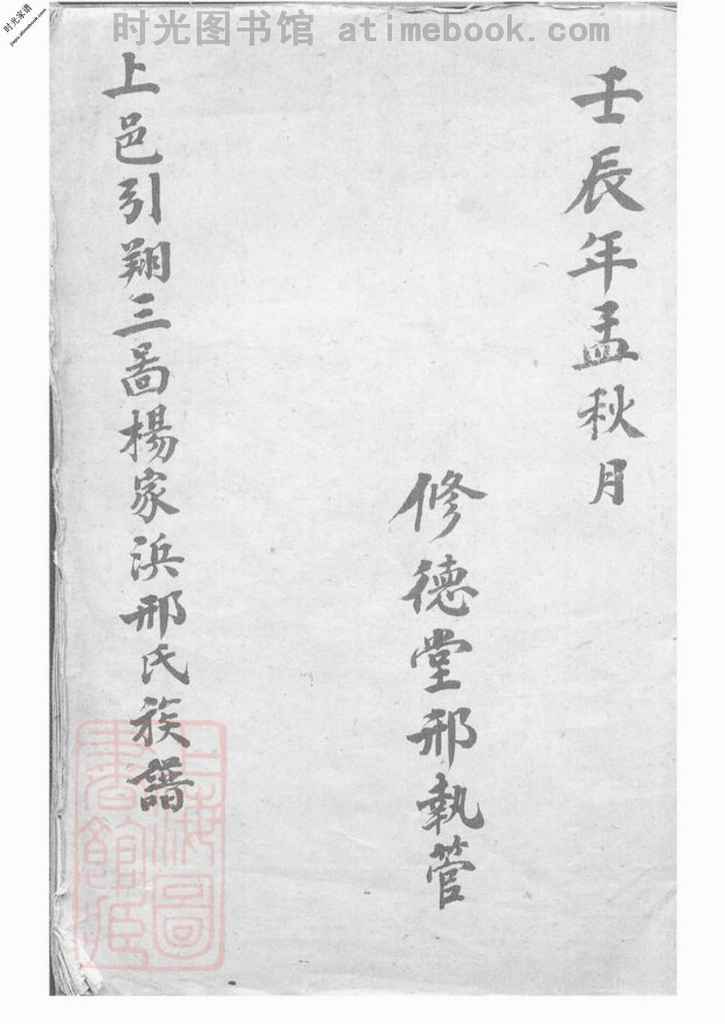 时光图书馆 atimebook.com
时光家谱
壬辰年孟秋月
修德堂邢執管
上邑引翔三啚楊家浜邢氏族譜
上海圖書館藏